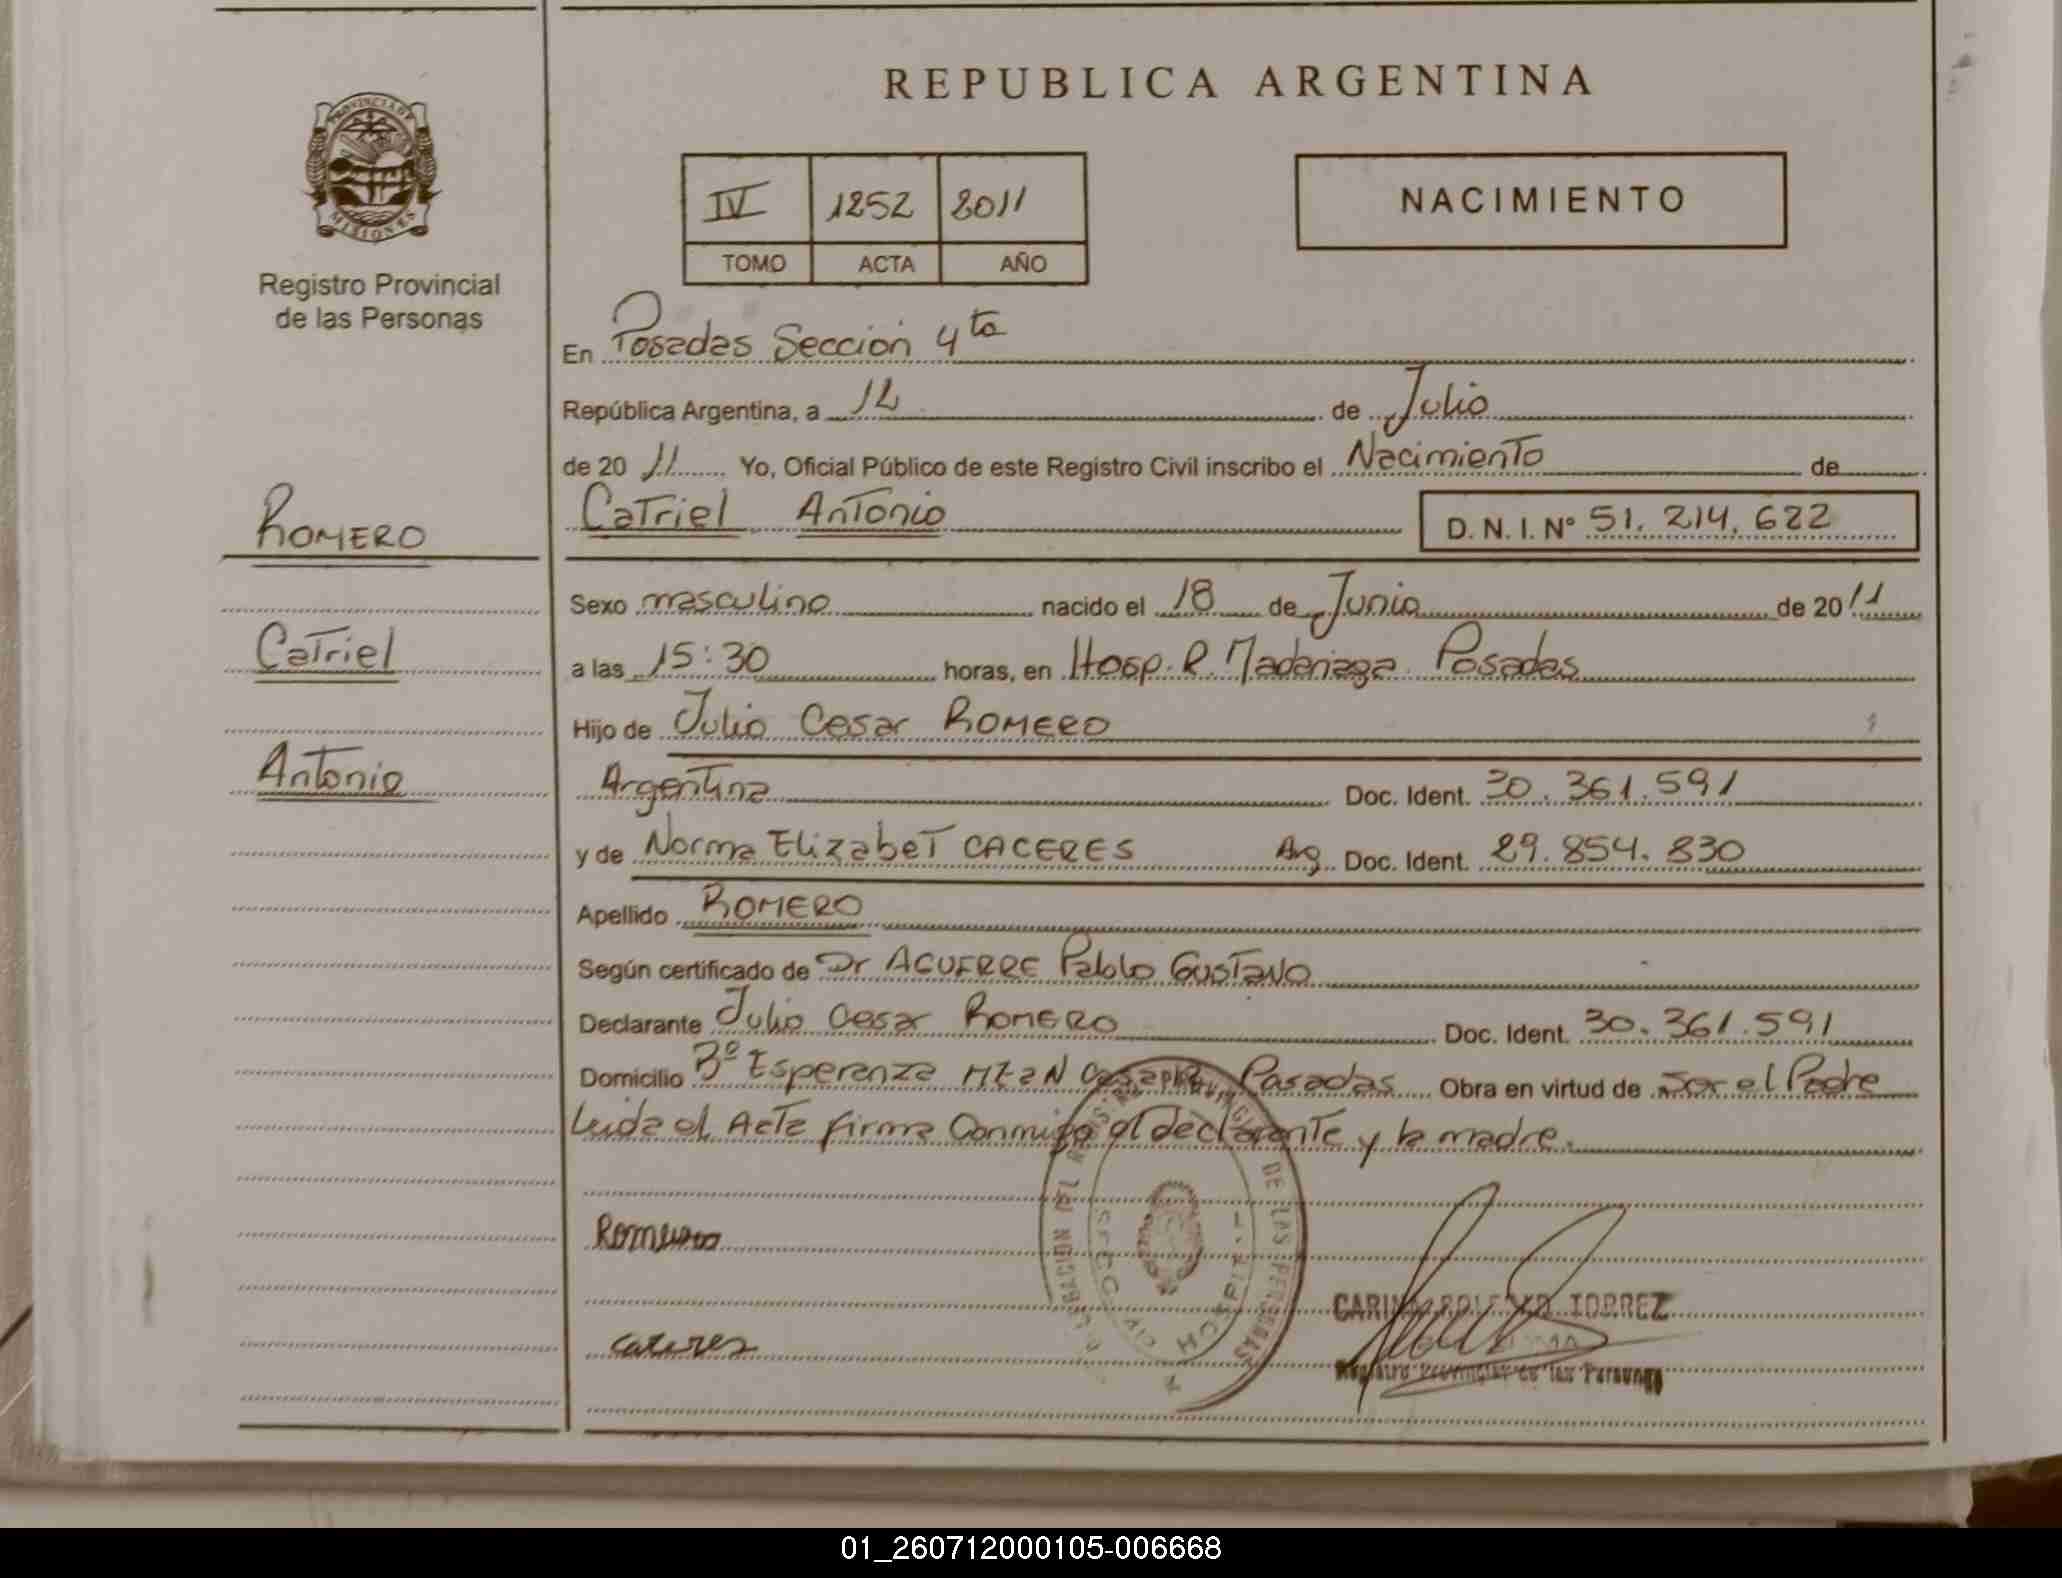 REPUBLICA ARGENTINA
PROVINCIA DE
MISIONES
Registro Provincial
de las Personas
IV 1252 2011
TOMO ACTA AÑO
NACIMIENTO
En Posadas Sección 4ta
República Argentina, a 14 de Julio
de 2011 Yo, Oficial Público de este Registro Civil inscribo el Nacimiento de
Catriel Antonio D. N. I. Nº 51.214.622
ROMERO
Catriel
Antonio
Sexo masculino nacido el 18 de Junio de 2011
a las 15:30 horas, en Hosp. R. Madariaga Posadas
Hijo de Julio Cesar ROMERO
Argentina Doc. Ident. 30.361.591
y de Norma Elizabet CACERES Arg. Doc. Ident. 29.854.830
Apellido ROMERO
Según certificado de Dr AGUERRE Pablo Gustavo
Declarante Julio Cesar ROMERO Doc. Ident. 30.361.591
Domicilio Bº Esperanza Posadas Obra en virtud de ser el Padre
Leida el Acta firma Conmigo el declarante y la madre.
DE LAS PERSONAS
Romero
Caceres
TORREZ
Registro Provincial de las Personas
01_260712000105-006668